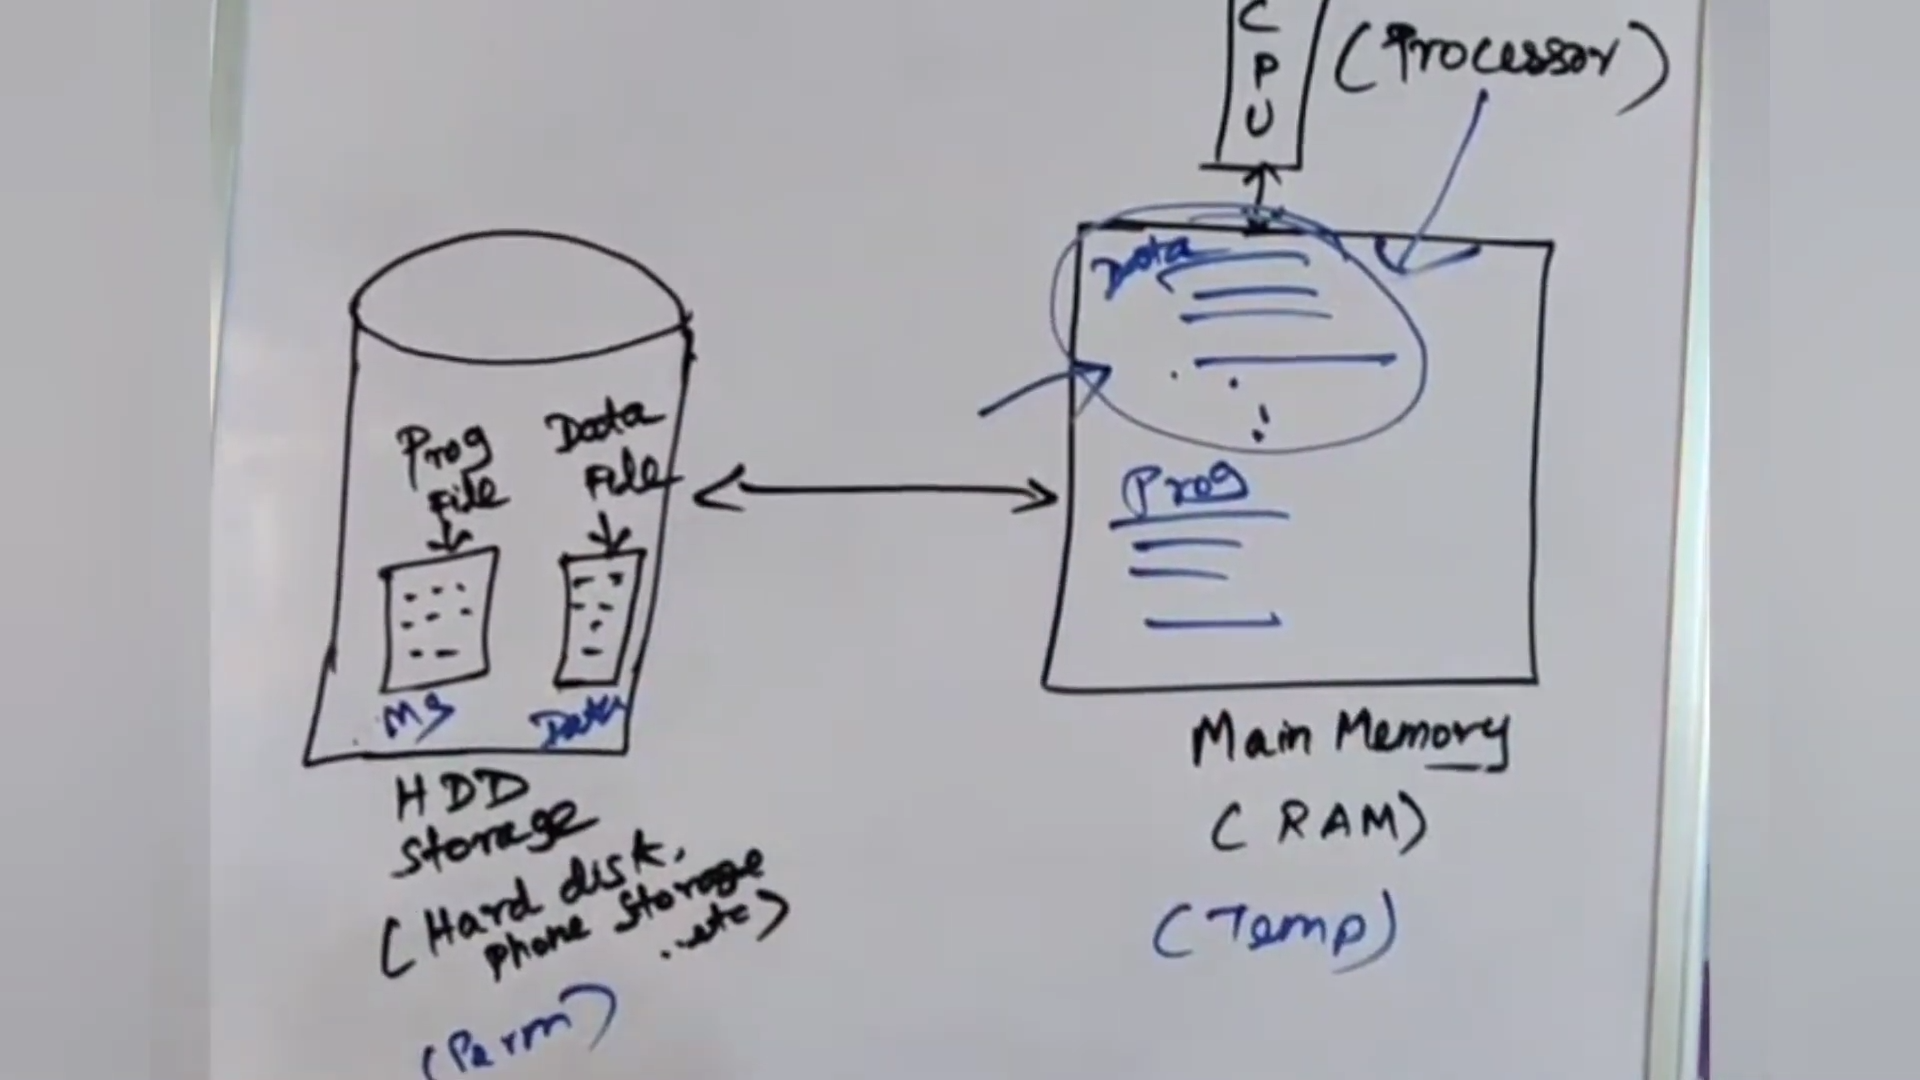 C
P
U
(Processor)
Data
Prog
File
Data
File
Prog
MS
Data
HDD
Storage
(Hard disk,
Phone Storage
..etc)
(Perm)
Main Memory
(RAM)
(Temp)